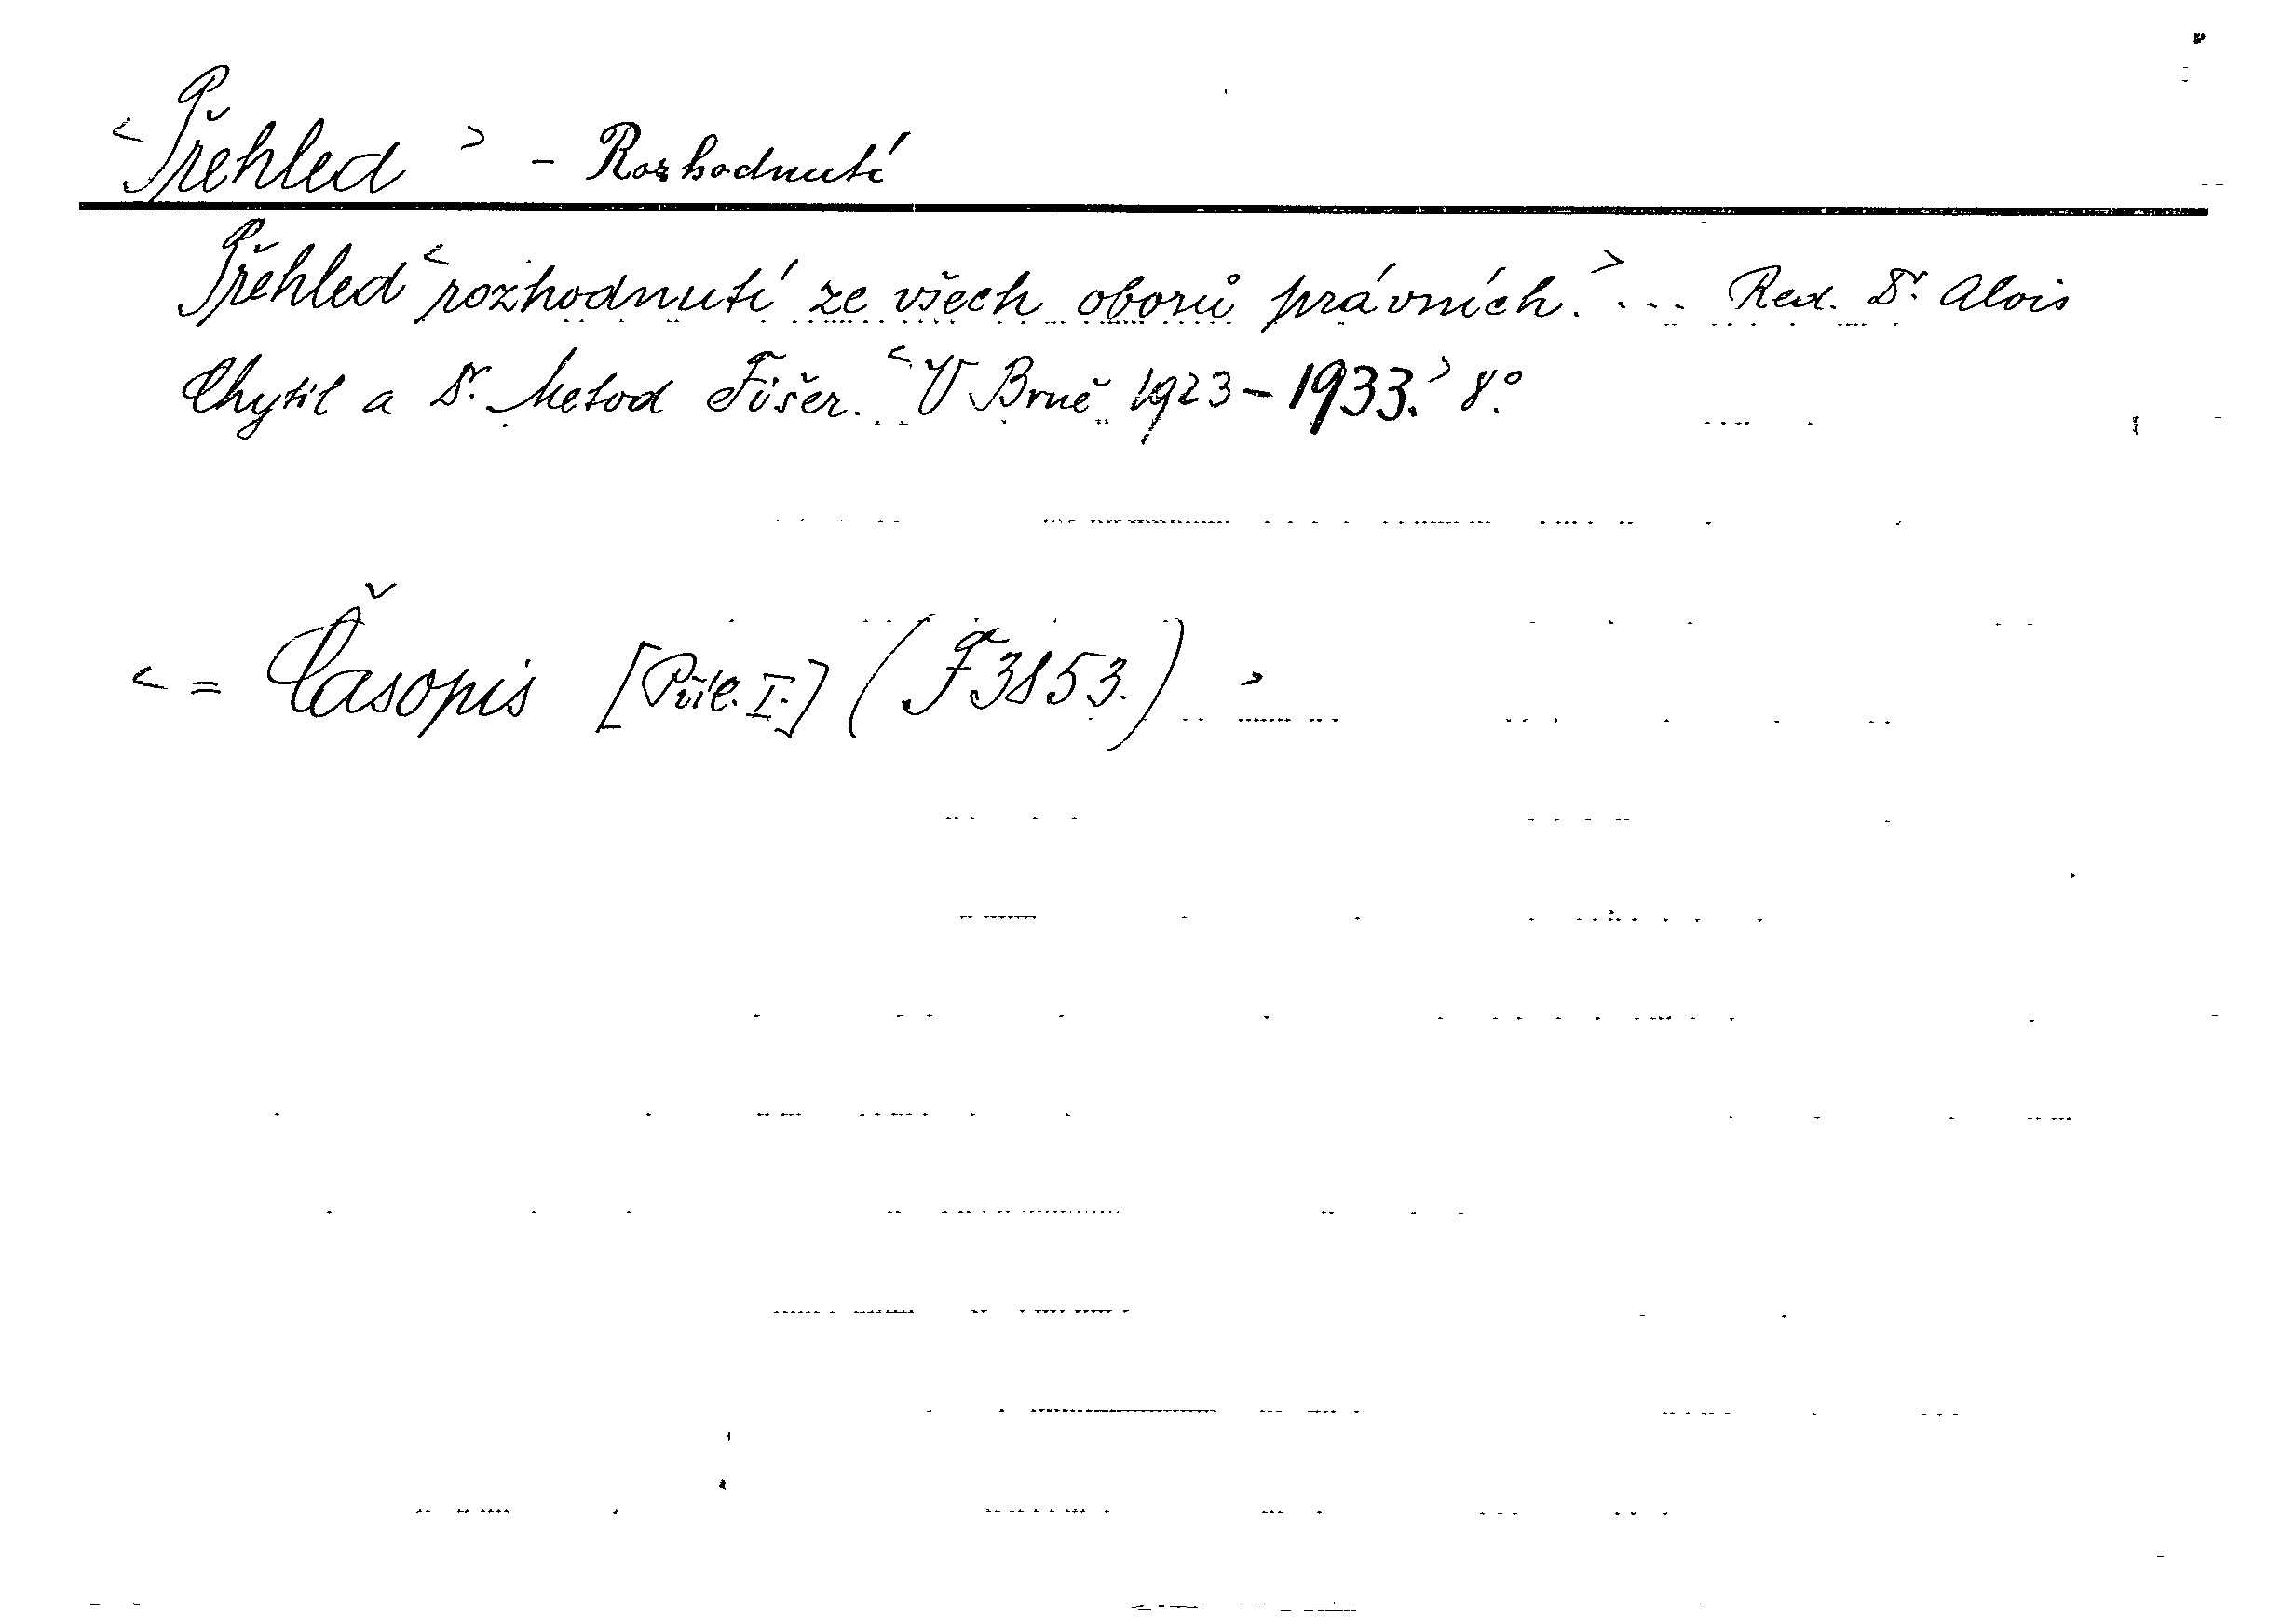 < Přehled > - Rozhodnutí
Přehled < rozhodnutí ze všech oborů právních. > ... Red. Dr. Alois
Chytil a Dr. Metod Fišer. < V Brně 1923 - 1933. > 8°.
< = Časopis [Příl. I.] (F 3853.) >